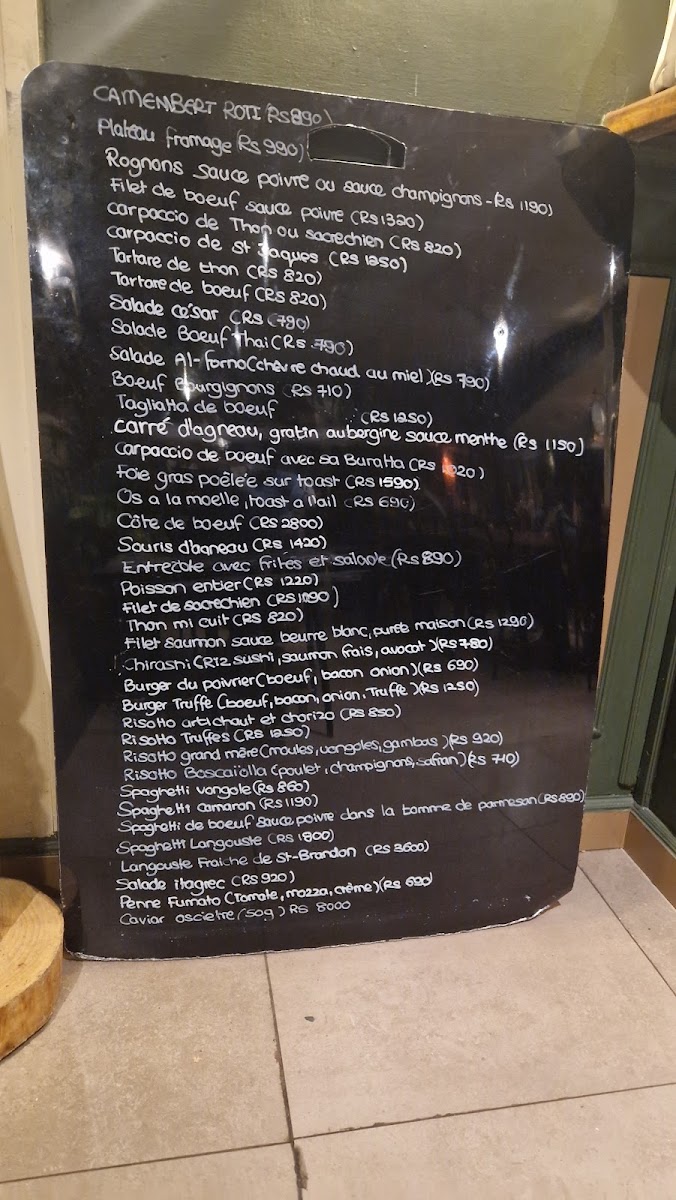 CAMEMBERT ROTI (RS 890)
Plateau fromage (RS 990)
Rognons sauce poivre ou sauce champignons - RS 1190)
Filet de boeuf sauce poivre (RS 1320)
carpaccio de Thon ou sacrechien (RS 820)
carpaccio de St Jaques (RS 1250)
Tartare de thon (RS 820)
Tartare de boeuf (RS 820)
Salade césar (RS (790)
Salade Boeuf Thai (RS 790)
Salade Al-forno (chèvre chaud au miel) (RS 790)
Boeuf Bourgignons (RS 710)
Tagliatta de boeuf (RS 1250)
carré d'agneau, gratin aubergine sauce menthe (RS 1150)
carpaccio de boeuf avec sa Buratta (RS
Foie gras poêlée sur toast (RS 1590)
Os a la moelle, toast a l'ail (RS 690)
Côte de boeuf (RS 2800)
Souris d'agneau (RS 1420)
Entrecôte avec frites et salade (RS 890)
Poisson entier (RS 1220)
Filet de sacrechien (RS 1090)
Thon mi cuit (RS 820)
Filet saumon sauce beurre blanc, purée maison (RS 1290)
Chirashi (RIZ sushi, saumon frais, avocat) (RS 780)
Burger du poivrier (boeuf, bacon onion) (RS 690)
Burger Truffe (boeuf, bacon, onion. Truffe) (RS 1250)
Risotto artichaut et chorizo (RS 850)
Risotto Truffes (RS 1250)
Risotto grand mère (moules, vongoles, gambas) (RS 920)
Risotto Boscaïolla (poulet, champignons, safran) (RS 710)
Spaghetti vongole (RS 860)
Spaghetti camaron (RS 1190)
Spaghetti de boeuf sauce poivre dans la tomme de parmesan (RS 890)
Spaghetti Langouste (RS 1800)
Langouste Fraiche de St-Brandon (RS 3600)
Salade itagrec (RS 920)
Penne Fumato (Tomate, mozza, crème) (RS 690)
Caviar oscietre (50g) RS 8000